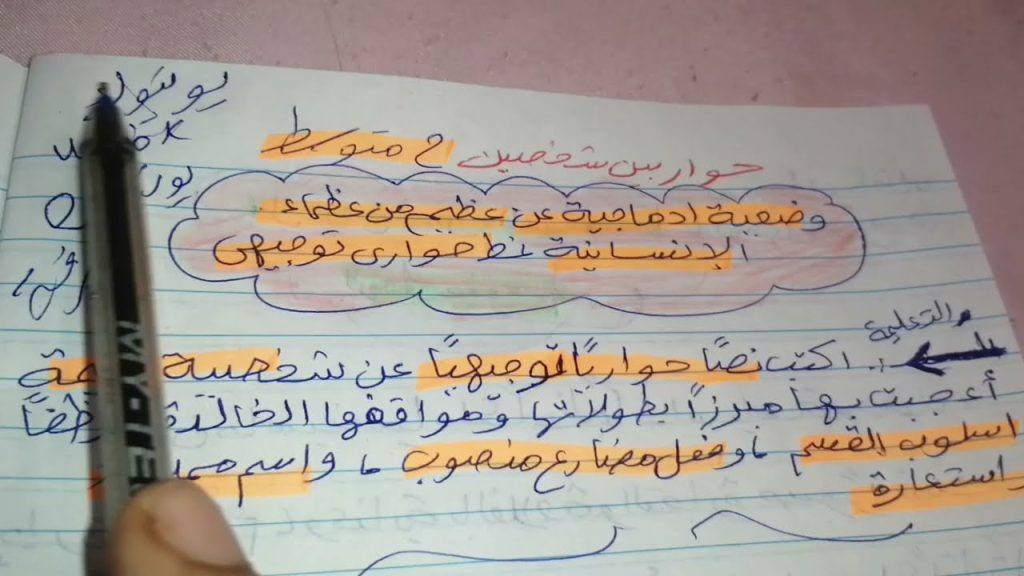 حوار بين شخصين 2 متوسط
وضعية ادماجية عن عظيم من عظماء
الإنسانية نمط حواري توجيهي
التعليمة
اكتب نصًا حواريًا توجيهيًا عن شخصية
أعجبت بها مبرزاً بطولاتها ومواقفها الخالدة
اسلوب القسم، وفعل مضارع منصوب، واسم
واستعارة
MYG